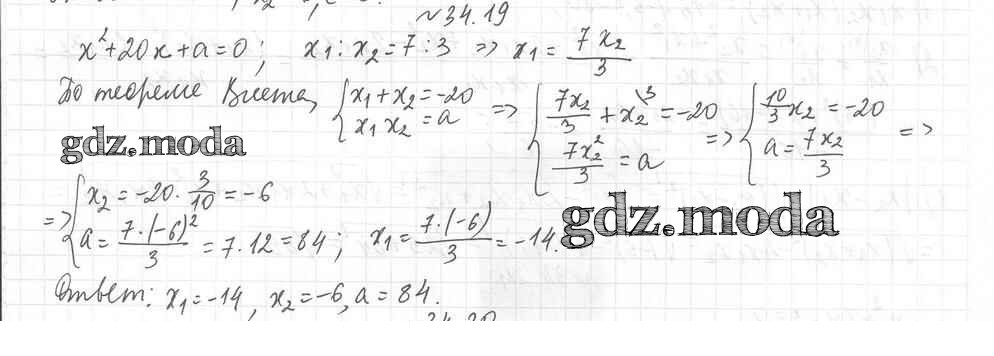 №34.19
x²+20x+a=0; x₁:x₂=7:3 => x₁= 7x₂/3
По теореме Виета, {x₁+x₂=-20; x₁x₂=a => {7x₂/3+x₂\³=-20; 7x₂²/3=a => {10/3x₂=-20; a=7x₂/3 =>
gdz.moda
=> {x₂=-20·3/10=-6; a=7·(-6)²/3=7·12=84; x₁=7·(-6)/3=-14.
gdz.moda
Ответ: x₁=-14, x₂=-6, a=84.
34.20